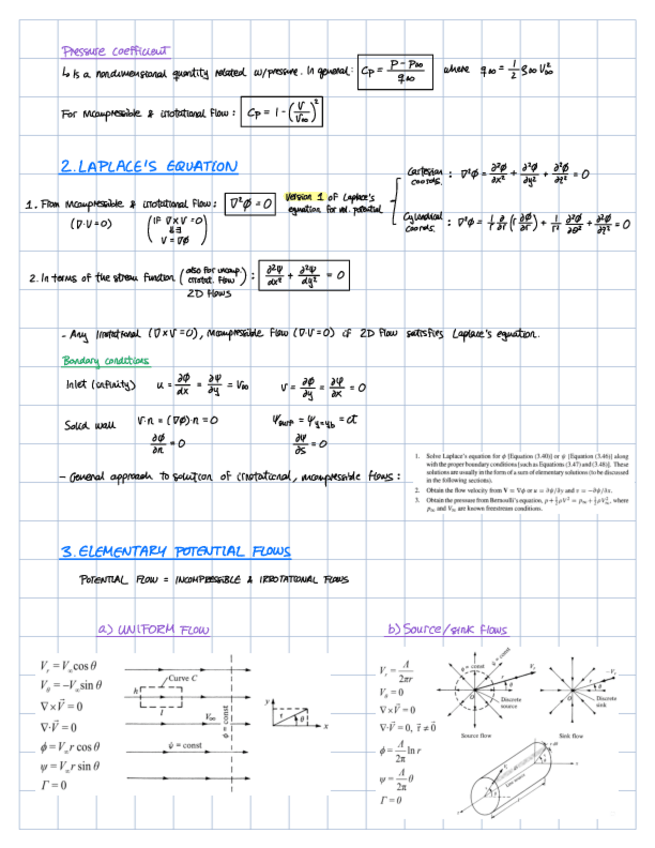 Pressure coefficient
↳ Is a nondimensional quantity related w/pressure. In general: Cp = (P - P∞)/q∞ where q∞ = 1/2 ρ∞ V∞²
For incompressible & irrotational flow: Cp = 1 - (V/V∞)²
2. LAPLACE'S EQUATION
1. From incompressible & irrotational flow: ∇²φ = 0 Version 1 of Laplace's equation for vel. potential
(∇·V=0) (IF ∇×V=0 ⇓∃ V=∇φ)
Cartesian coords. : ∇²φ = ∂²φ/∂x² + ∂²φ/∂y² + ∂²φ/∂z² = 0
Cylindrical coords. : ∇²φ = 1/r ∂/∂r (r ∂φ/∂r) + 1/r² ∂²φ/∂θ² + ∂²φ/∂z² = 0
2. In terms of the stream function (also for incomp. irrotat. flow) : ∂²ψ/dx² + ∂²ψ/dy² = 0
2D flows
- Any irrotational (∇×V=0), incompressible flow (∇·V=0) of 2D flow satisfies Laplace's equation.
Bondary conditions
Inlet (infinity) u = ∂φ/dx = ∂ψ/∂y = V∞ V = ∂φ/∂y = ∂ψ/∂x = 0
Solid wall V·n = (∇φ)·n = 0 ψsurf = ψy=yb = ct
∂φ/∂n = 0 ∂ψ/∂s = 0
- General approach to solution of irrotational, incompressible flows :
1. Solve Laplace's equation for φ [Equation (3.40)] or ψ [Equation (3.46)] along
with the proper boundary conditions [such as Equations (3.47) and (3.48)]. These
solutions are usually in the form of a sum of elementary solutions (to be discussed
in the following sections).
2. Obtain the flow velocity from V = ∇φ or u = ∂ψ/∂y and v = −∂ψ/∂x.
3. Obtain the pressure from Bernoulli's equation, p + ½ρV² = p∞ + ½ρV∞², where
p∞ and V∞ are known freestream conditions.
3. ELEMENTARY POTENTIAL FLOWS
POTENTIAL FLOW = INCOMPRESSIBLE & IRROTATIONAL FLOWS
a) UNIFORM FLOW
V_r = V∞ cos θ
V_θ = −V∞ sin θ
∇×V⃗ = 0
∇·V⃗ = 0
φ = V∞ r cos θ
ψ = V∞ r sin θ
Γ = 0
Curve C
h
l
V∞
ψ = const
φ = const
y
r
θ
x
b) Source/sink flows
V_r = Λ/2πr
V_θ = 0
∇×V⃗ = 0
∇·V⃗ = 0, r⃗ ≠ 0⃗
φ = Λ/2π ln r
ψ = Λ/2π θ
Γ = 0
ψ = const
φ = const
V_r
θ
Discrete
source
Source flow
−V_r
Discrete
sink
Sink flow
Line source